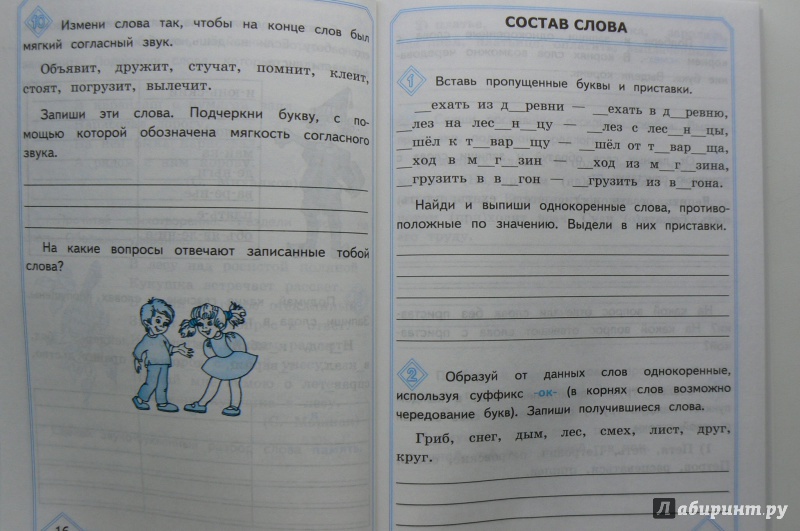 10 Измени слова так, чтобы на конце слов был
мягкий согласный звук.
Объявит, дружит, стучат, помнит, клеит,
стоят, погрузит, вылечит.
Запиши эти слова. Подчеркни букву, с по-
мощью которой обозначена мягкость согласного
звука.
На какие вопросы отвечают записанные тобой
слова?
16
СОСТАВ СЛОВА
1 Вставь пропущенные буквы и приставки.
__ехать из д__ревни — __ехать в д__ревню,
__лез на лес__н__цу — __лез с лес__н__цы,
__шёл к т__вар__щу — __шёл от т__вар__ща,
__ход в м__г__зин — __ход из м__г__зина,
__грузить в в__гон — __грузить из в__гона.
Найди и выпиши однокоренные слова, противо-
положные по значению. Выдели в них приставки.
2 Образуй от данных слов однокоренные,
используя суффикс -ок- (в корнях слов возможно
чередование букв). Запиши получившиеся слова.
Гриб, снег, дым, лес, смех, лист, друг,
круг.
Лабиринт.ру